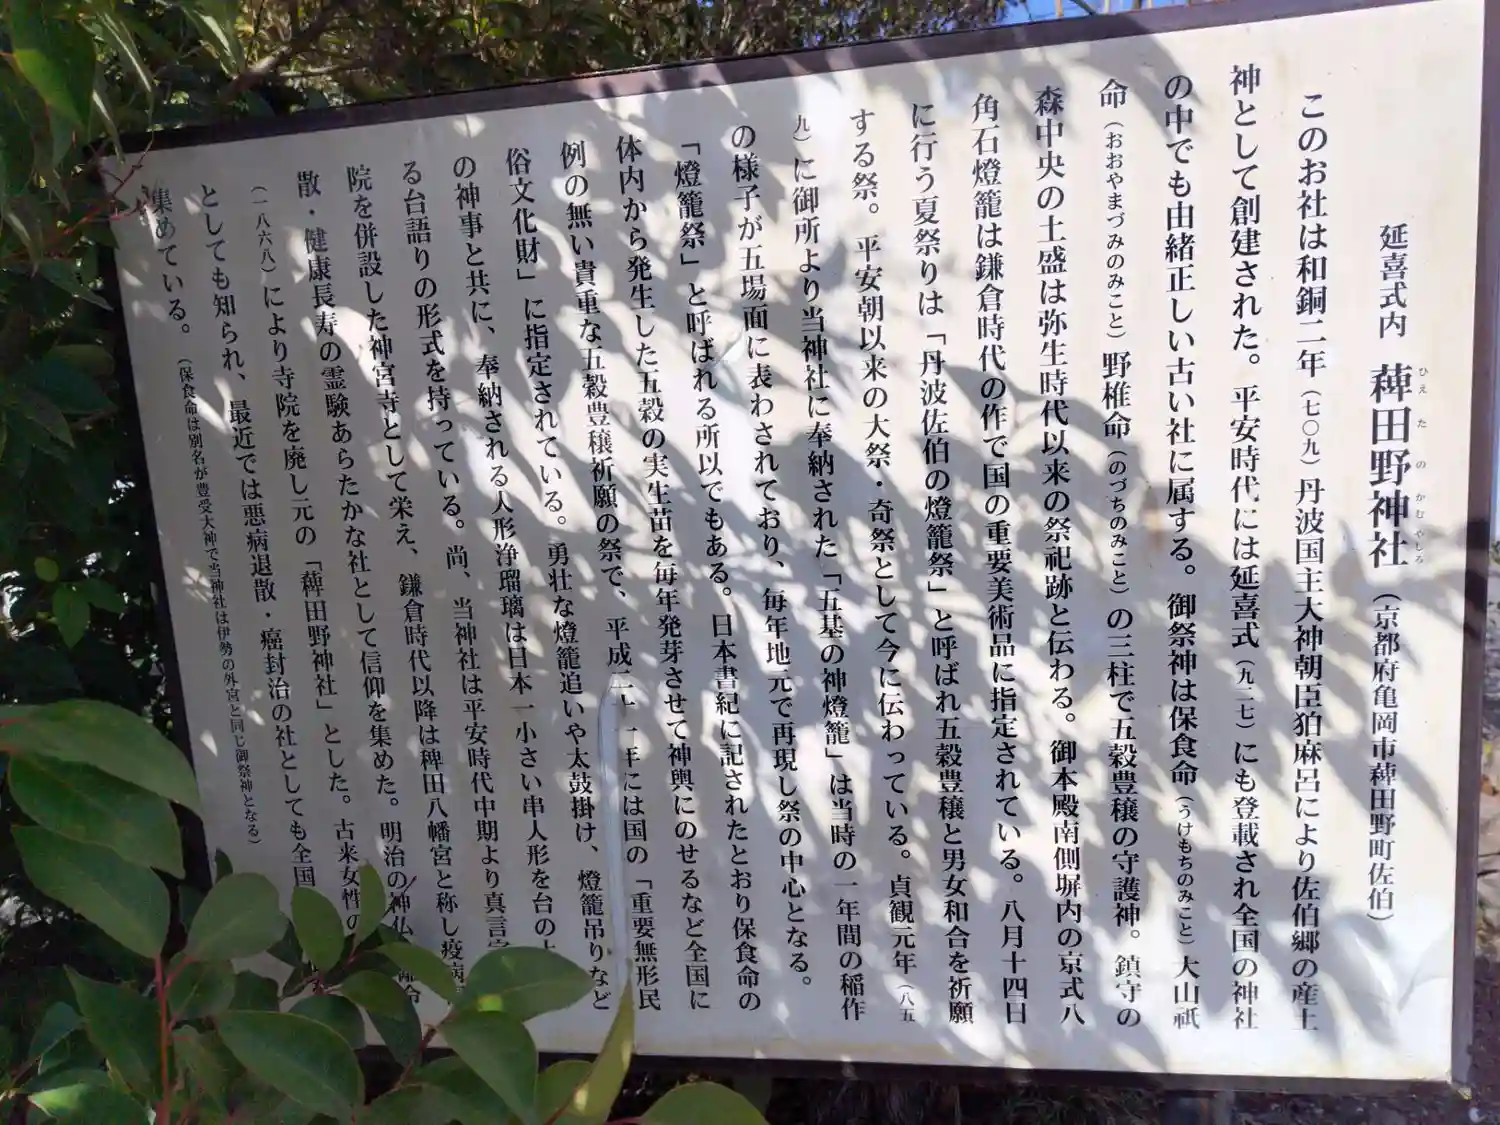 延喜式内 薭田野神社（京都府亀岡市薭田野町佐伯）
ひえたのかむやしろ
このお社は和銅二年（七〇九）丹波国主大神朝臣狛麻呂により佐伯郷の産土
神として創建された。平安時代には延喜式（九二七）にも登載され全国の神社
の中でも由緒正しい古い社に属する。御祭神は保食命（うけもちのみこと）大山祇
命（おおやまづみのみこと）野椎命（のづちのみこと）の三柱で五穀豊穣の守護神。鎮守の
森中央の土盛は弥生時代以来の祭祀跡と伝わる。御本殿南側塀内の京式八
角石燈籠は鎌倉時代の作で国の重要美術品に指定されている。八月十四日
に行う夏祭りは「丹波佐伯の燈籠祭」と呼ばれ五穀豊穣と男女和合を祈願
する祭。平安朝以来の大祭・奇祭として今に伝わっている。貞観元年（八五
九）に御所より当神社に奉納された「五基の神燈籠」は当時の一年間の稲作
の様子が五場面に表わされており、毎年地元で再現し祭の中心となる。
「燈籠祭」と呼ばれる所以でもある。日本書紀に記されたとおり保食命の
体内から発生した五穀の実生苗を毎年発芽させて神輿にのせるなど全国に
例の無い貴重な五穀豊穣祈願の祭で、平成二十一年には国の「重要無形民
俗文化財」に指定されている。勇壮な燈籠追いや太鼓掛け、燈籠吊りなど
の神事と共に、奉納される人形浄瑠璃は日本一小さい串人形を台の上
る台語りの形式を持っている。尚、当神社は平安時代中期より真言宗
院を併設した神宮寺として栄え、鎌倉時代以降は稗田八幡宮と称し疫病
散・健康長寿の霊験あらたかな社として信仰を集めた。明治の神仏 令
（一八六八）により寺院を廃し元の「薭田野神社」とした。古来女性の
としても知られ、最近では悪病退散・癌封治の社としても全国
集めている。（保食命は別名が豊受大神で当神社は伊勢の外宮と同じ御祭神となる）